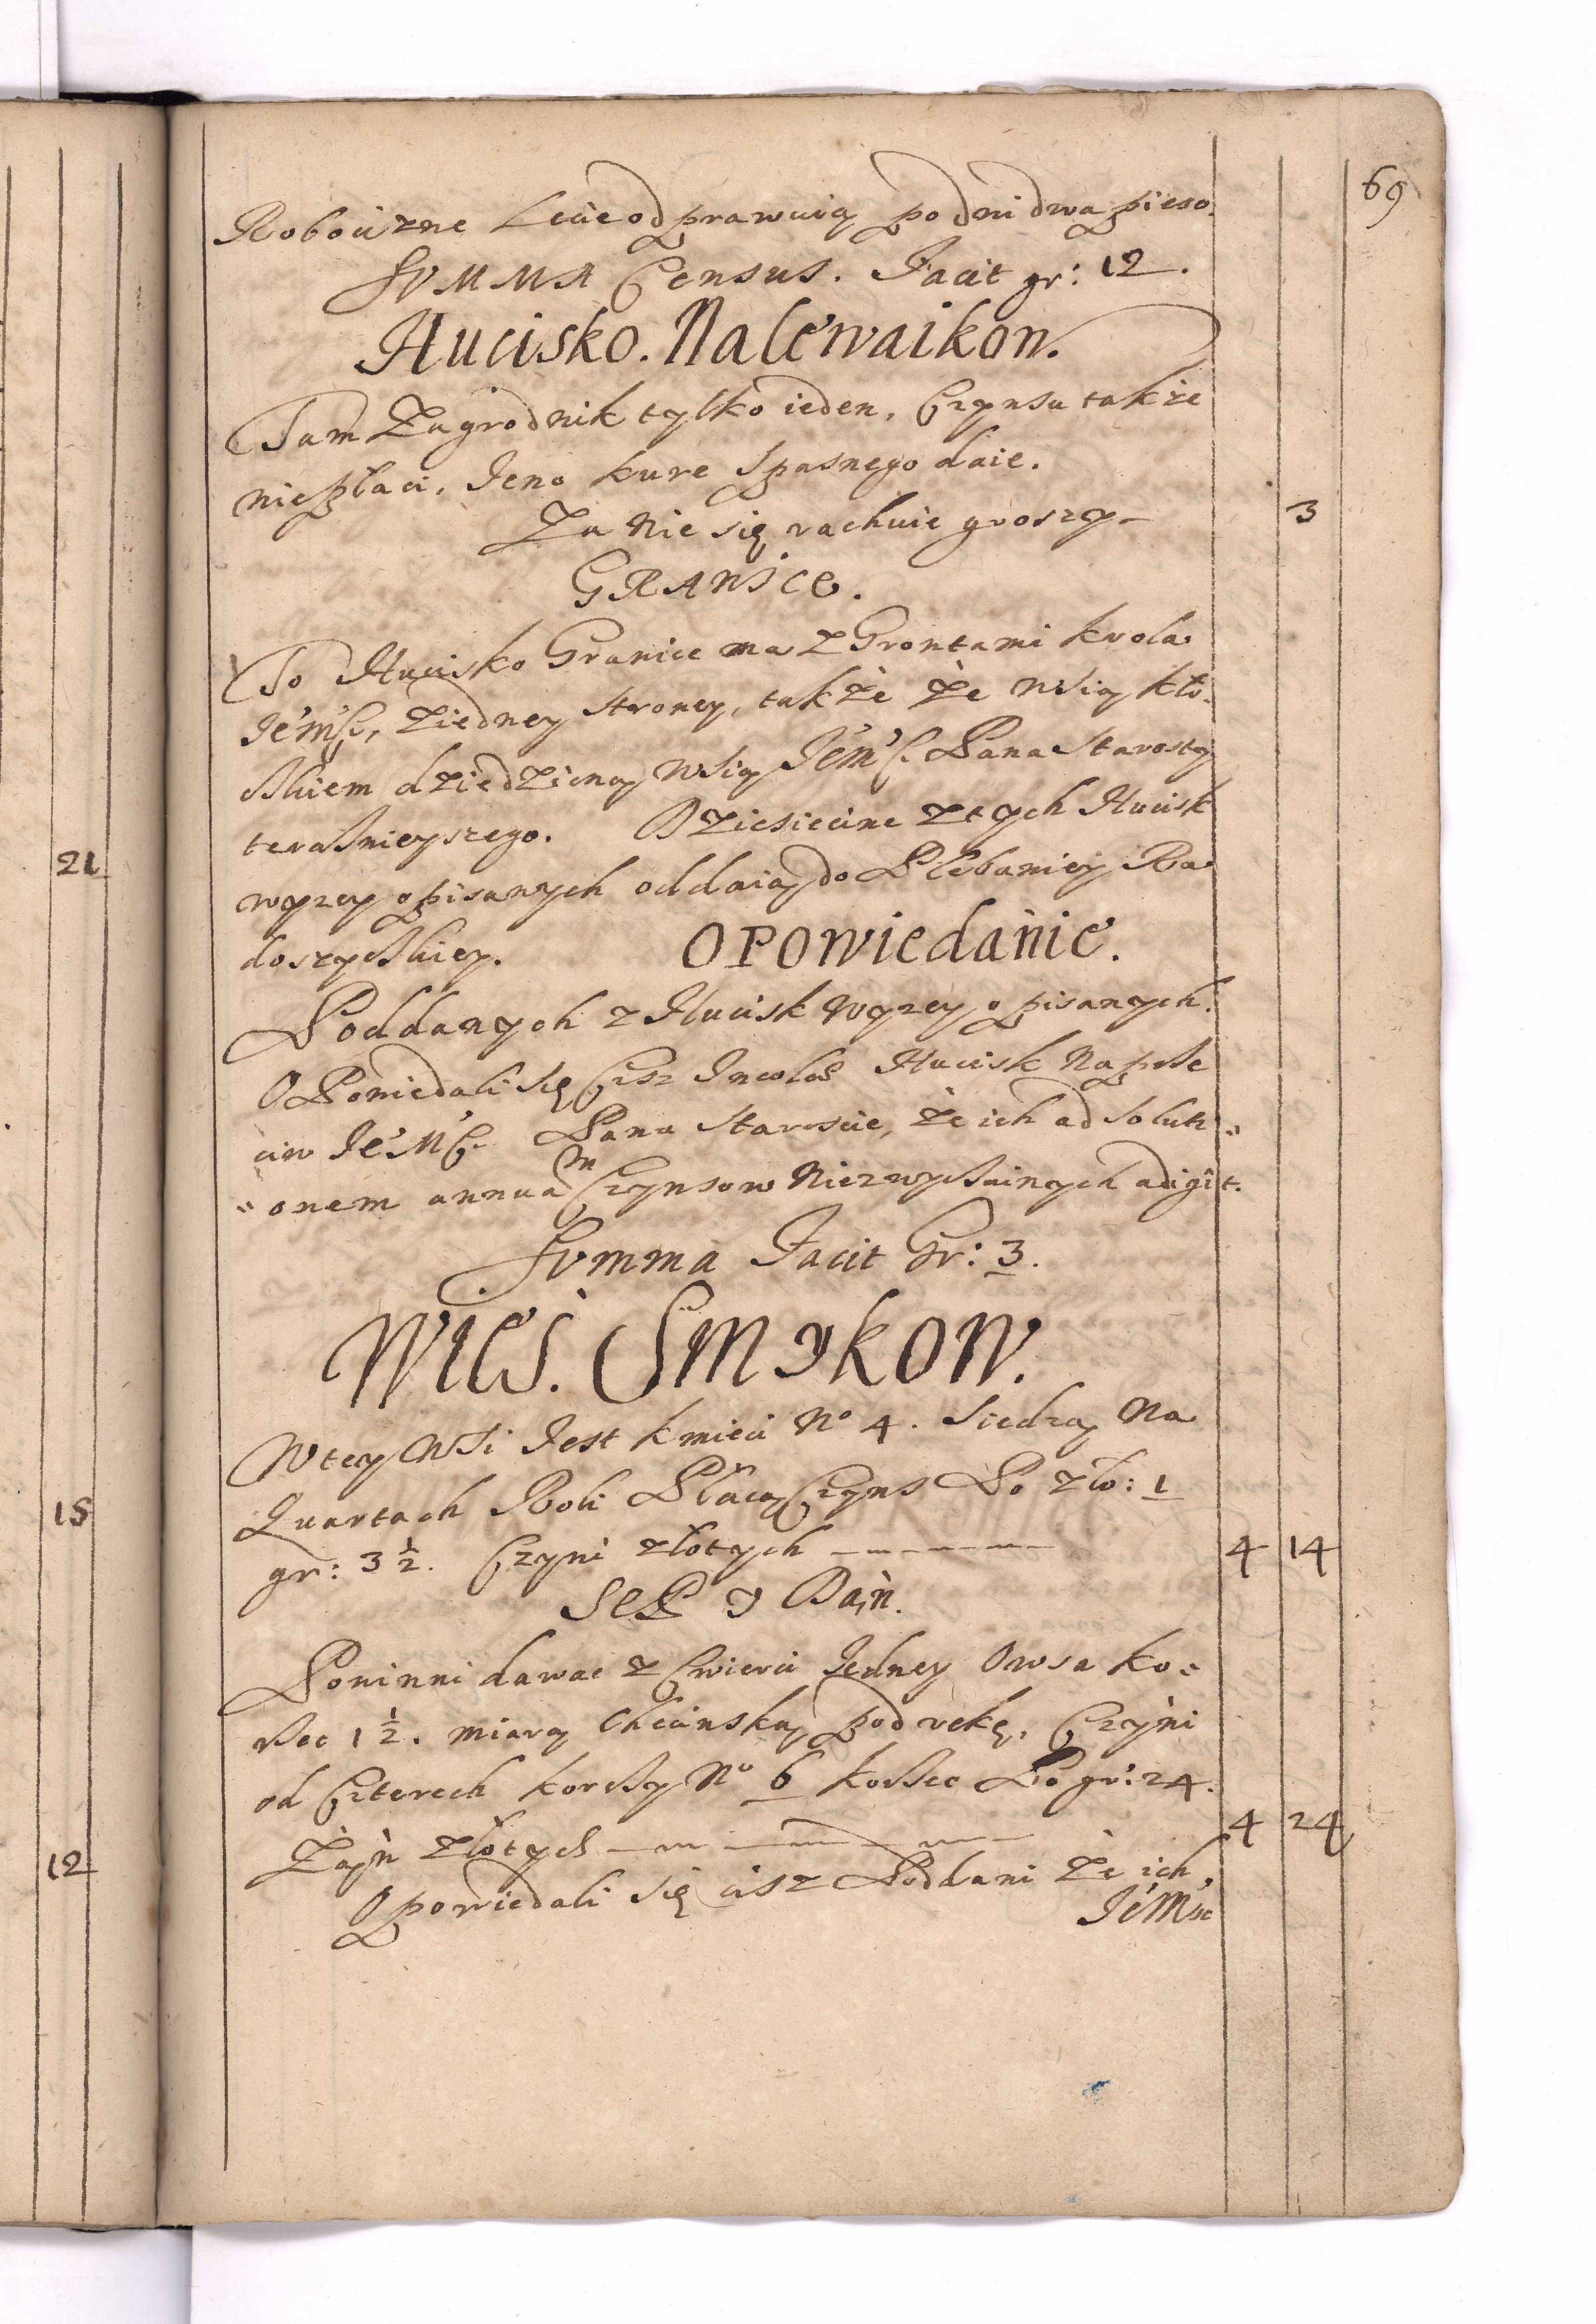 69
Robociznę Lecie odprawuią po dni dwa pieso.
SVMMA Census. Facit gr: 12.
Hucisko. Nalewaikow.
Tam Zagrodnik tylko ieden, Czynsu także
nie płaci, Jeno kure Spasnego daie.
Za nie się rachuie groszy – 3
GRANICe.
To Hucisko Granice ma z Grontami krola
Jeмс, z iedney strony, także ze wsią
dziedziczną wsią Jeмс. Pana Starosty
teraßnieyszego. Dziesiecine z tych Hucisk
wyzey opisanych oddaią do Plebaniey Ra
doszyckiey. Opowiedanie.
Poddanych z Hucisk wyzey opisanych.
Opowiedali się Cisz Incolae Hucisk na prze
ciw JeMC. Pana Staroscie, że ich ad soluti=
=onem annuam Czynsow niezwyczainych adigit.
Summa Facit Gr: 3.
Wieś. Smykow.
W tey wsi Jest kmieci No 4. siedzą na
Quartach Roli Płacą Czyns Po zło: 1
gr: 3 ½. Czyni złotych 4 14
SeP y Dań.
Powinni dawac z Cwierci Jedney Owsa ko=
rzec 1 ½. miary Checinskiey pod rekę, Czyni
od Czterech korcy No 6 korzec Po gr: 24.
Zań złotych 4 24
Opowiedali się cisz Poddani że ich
JeMsc
21
15
12